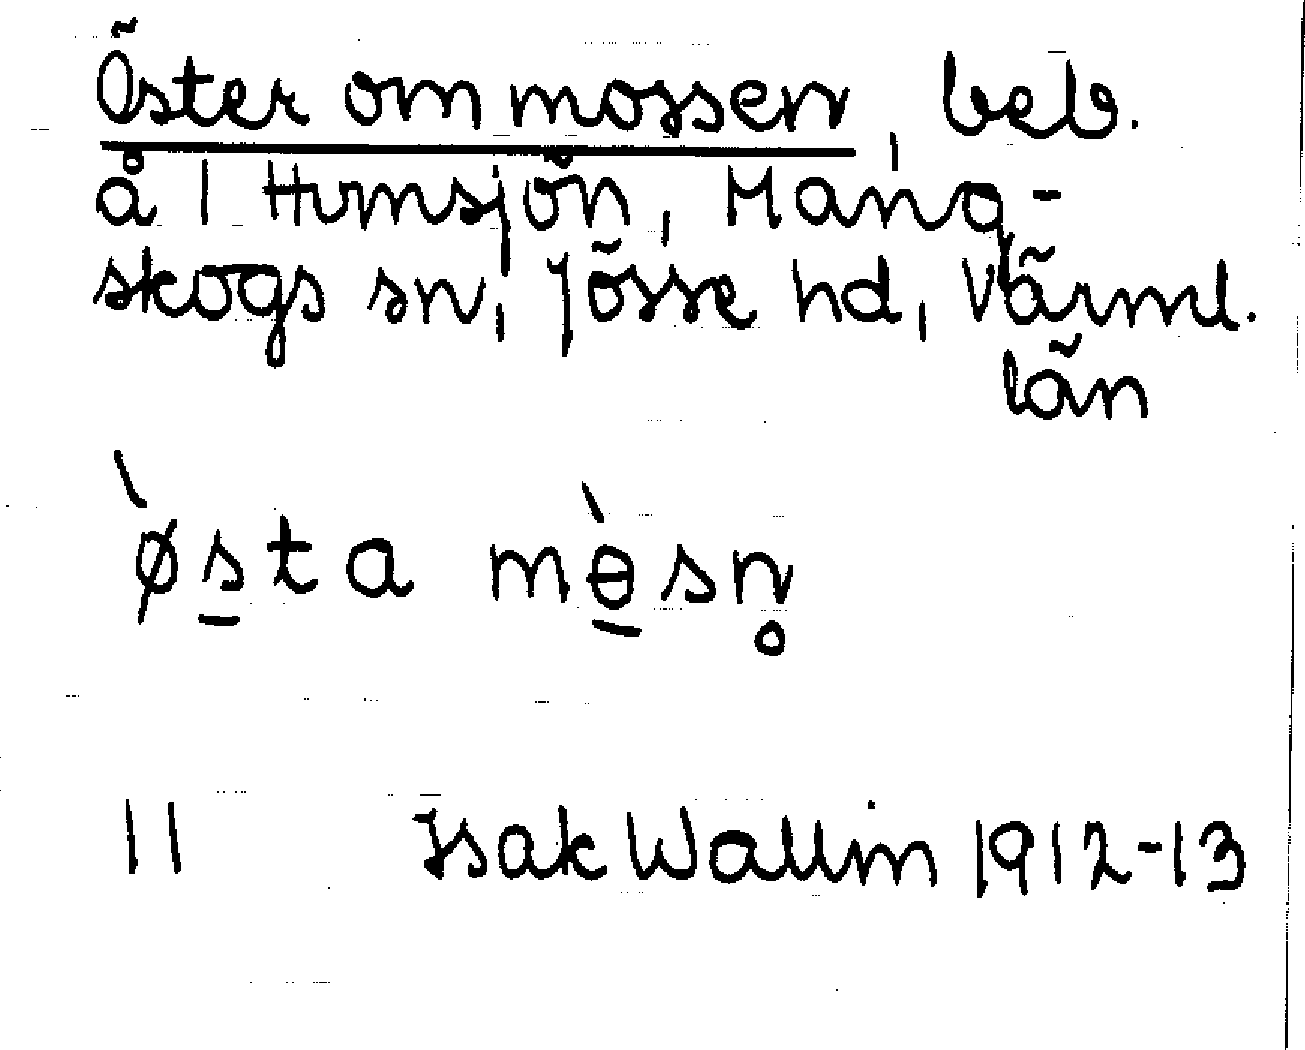 Öster om mossen, beb.
å 1 Humsjön, Mang-
skogs sn, Jösse hd, Värml.
län
`øs̲ta mө̲̀sn̥
11 Isak Wallin 1912-13